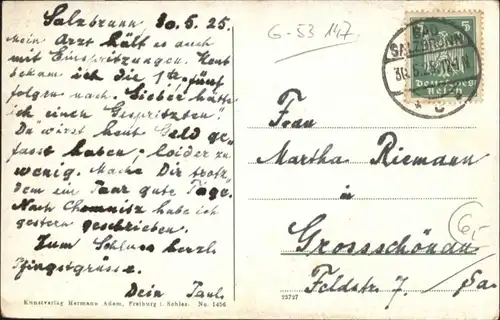 Salzbrunn 30.5.25.
Mein Arzt hält es auch
mit Einspritzungen. Heut
bekam ich die 1te, fünf
folgen nach. Lieber hätte
ich einen Gespritzten!
Du wirst heut Geld ge-
fasst haben; leider zu
wenig. Mache Dir trotz-
dem ein Paar gute Tage.
Nach Chemnitz habe ich
gestern geschrieben.
Zum Schluss herzl.
Pfingstgrüsse.
Dein Paul.
Kunstverlag Hermann Adam, Freiburg i. Schles. No. 1456
G-53 147
BAD
SALZBRUNN
5
Deutsches
Reich
* c
Frau
Martha Riemann
in
Grossschönau
Feldstr. 7. /Sa.
23727